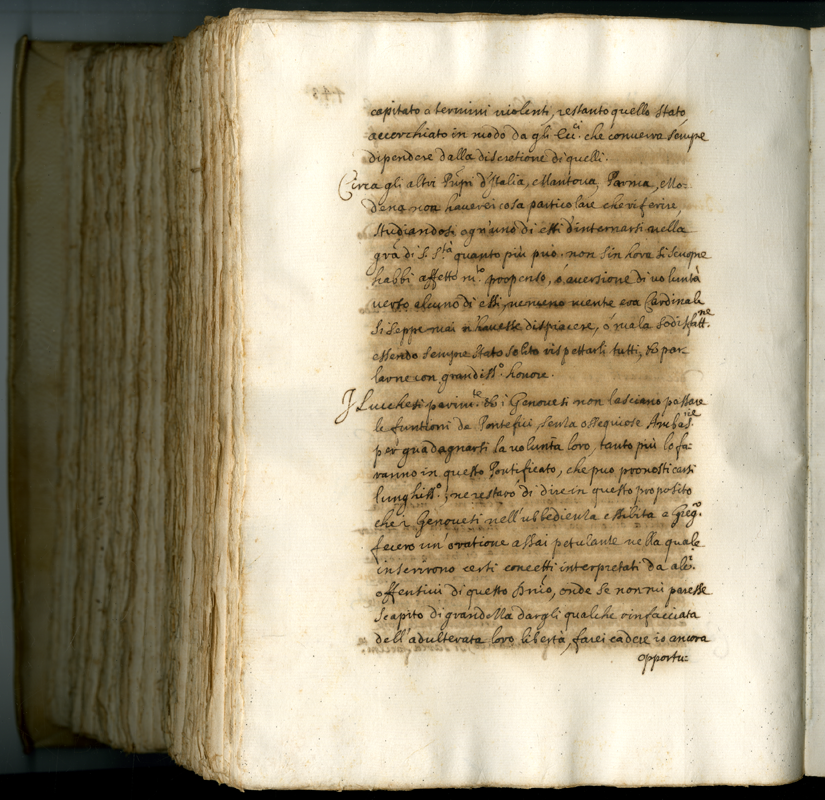 capitato a termini violenti, restanto quello stato
accerchiato in modo da gli Ecc.ci che converrà sempre
dipendere dalla discretione di quelli.
Circa gli altri Prīpi d'Italia, Mantova, Parma, Mo=
dena non haverei cosa particolare che riferire,
studiandosi ogn'uno di essi d'internarsi nella
grā di S. S.tà quanto più può. non sin hora si scuopre
habbi affetto m.to propenso, ò aversione di voluntà
verso alcuno di essi, nemeno mente era Cardinale
si seppe mai n'havesse dispiacere, ò mala sodisfatt.ne
essendo sempre stato solito rispettarli tutti, & par
larne con grandiss.o honore.
I Lucchesi parim.te & i Genovesi non lasciano passare
le funtioni de Pontefici, senza ossequiose Ambas.rie
per guadagnarsi la voluntà loro, tanto più lo fa=
ranno in questo Pontificato, che può pronosticarsi
lunghiss.o, ne restarò di dire in questo proposito
che i Genovesi nell'ubbedienza essibita a Greg.o
fecero un'oratione assai petulante nella quale
inserirono certi concetti interpretati da alc.i
offensivi di questo Dnīo, onde se non mi paresse
scapito di grandezza dargli qualche rinfacciata
dell'adulterata loro libertà, farei cadere io ancora
opportu=